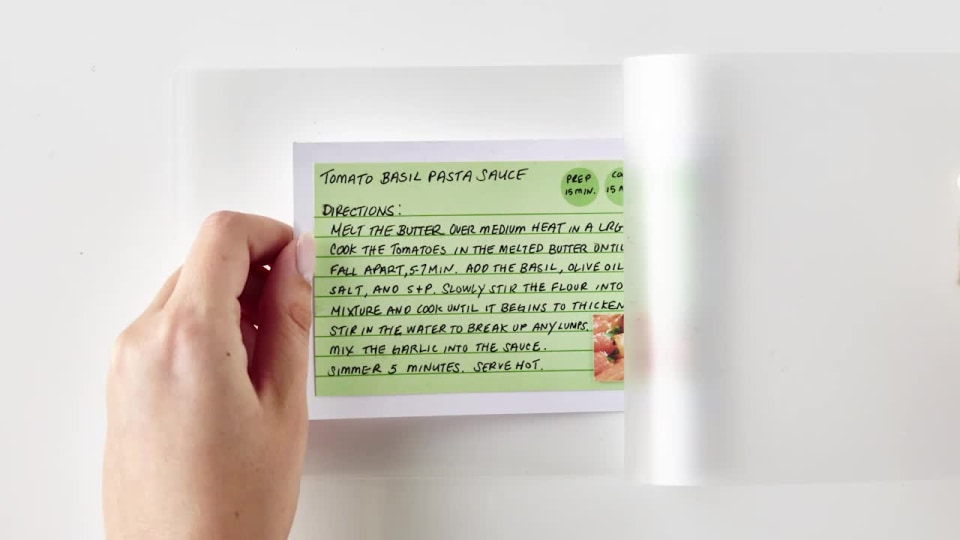 TOMATO BASIL PASTA SAUCE
PREP
15 MIN.
CO
15 M
DIRECTIONS:
MELT THE BUTTER OVER MEDIUM HEAT IN A LRG
COOK THE TOMATOES IN THE MELTED BUTTER UNTIL
FALL APART, 5-7 MIN. ADD THE BASIL, OLIVE OIL
SALT, AND S+P. SLOWLY STIR THE FLOUR INTO
MIXTURE AND COOK UNTIL IT BEGINS TO THICKEN
STIR IN THE WATER TO BREAK UP ANY LUMPS.
MIX THE GARLIC INTO THE SAUCE.
SIMMER 5 MINUTES. SERVE HOT.